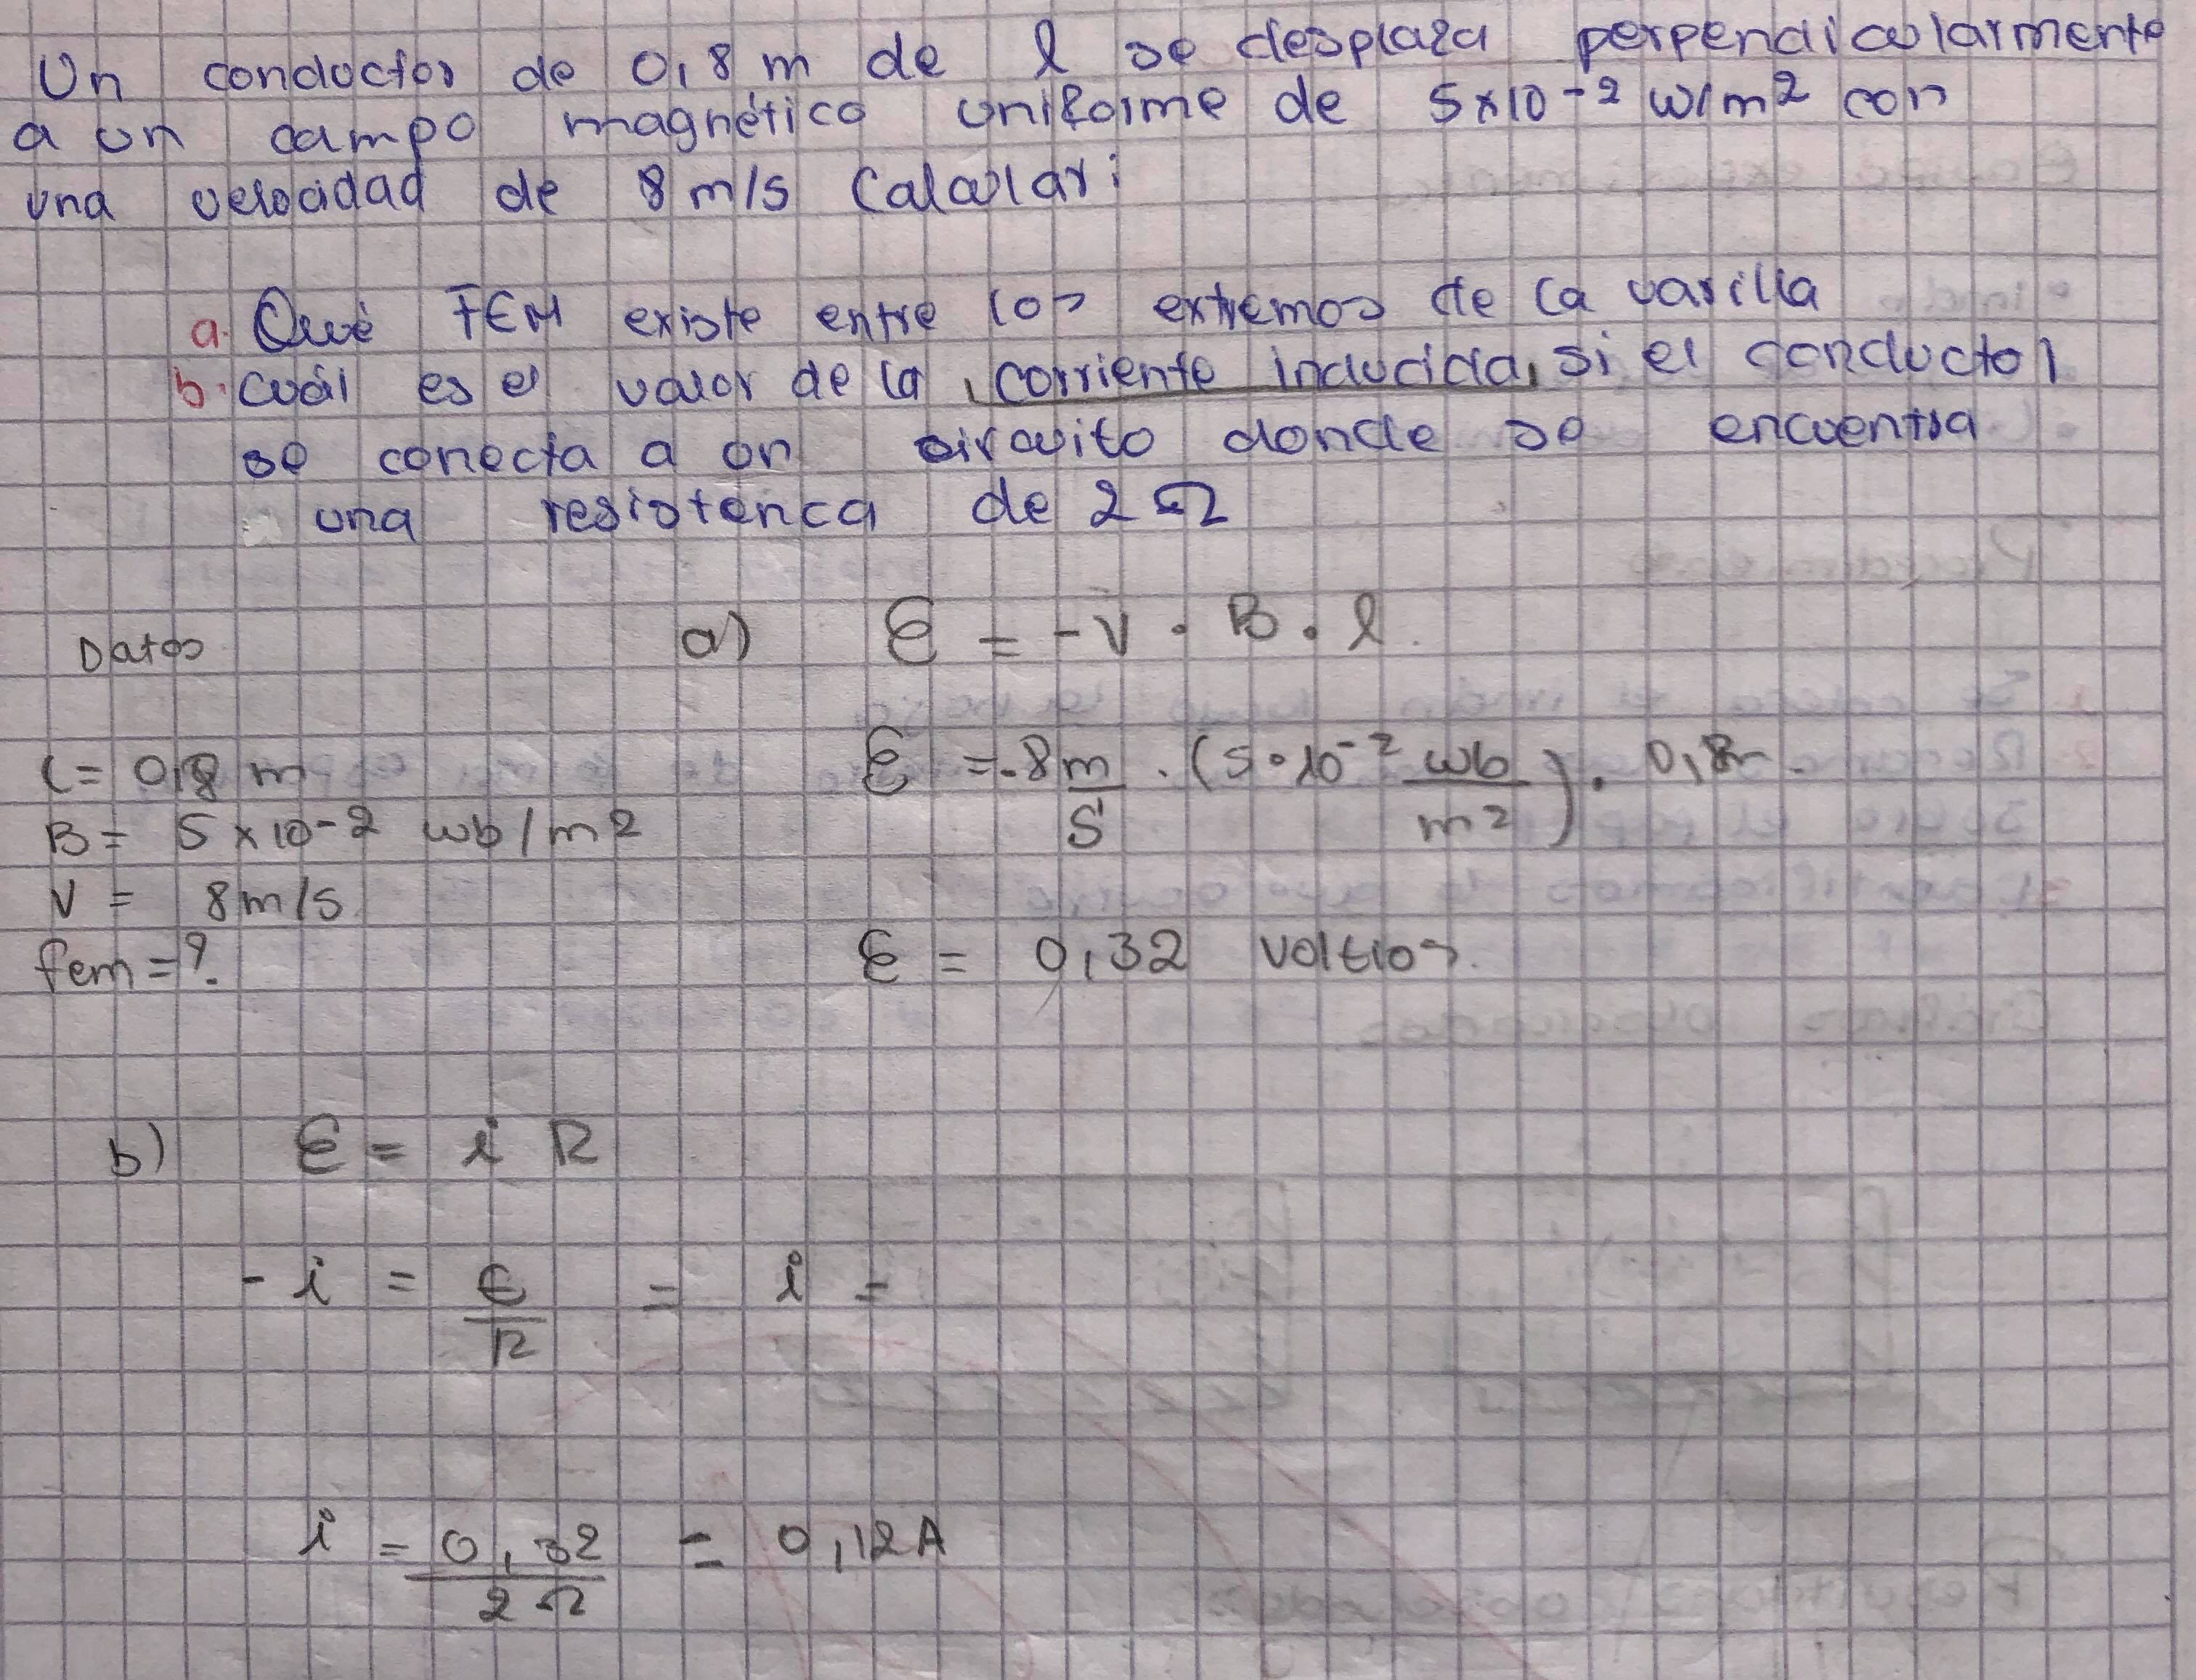 Un conductor de 0,8 m de l se desplaza perpendicularmente
a un campo magnético uniforme de 5x10-² w/m² con
una velocidad de 8 m/s Calcular:
a. Qué FEM existe entre los extremos de la varilla
b. Cuál es el valor de la corriente inducida, si el conductor
se conecta a un circuito donde se encuentra
una resistenca de 2 Ω
Datos
l= 0,8 m
B= 5x10-2 wb/m2
V = 8m/s
fem=?
a) Ɛ = -V · B · l.
Ɛ = -8 m/s · (5·10-² wb/m²) · 0,8m
Ɛ = 0,32 voltios.
b) Ɛ = i R
- i = Ɛ/R = i =
i = 0,32/2Ω = 0,12A